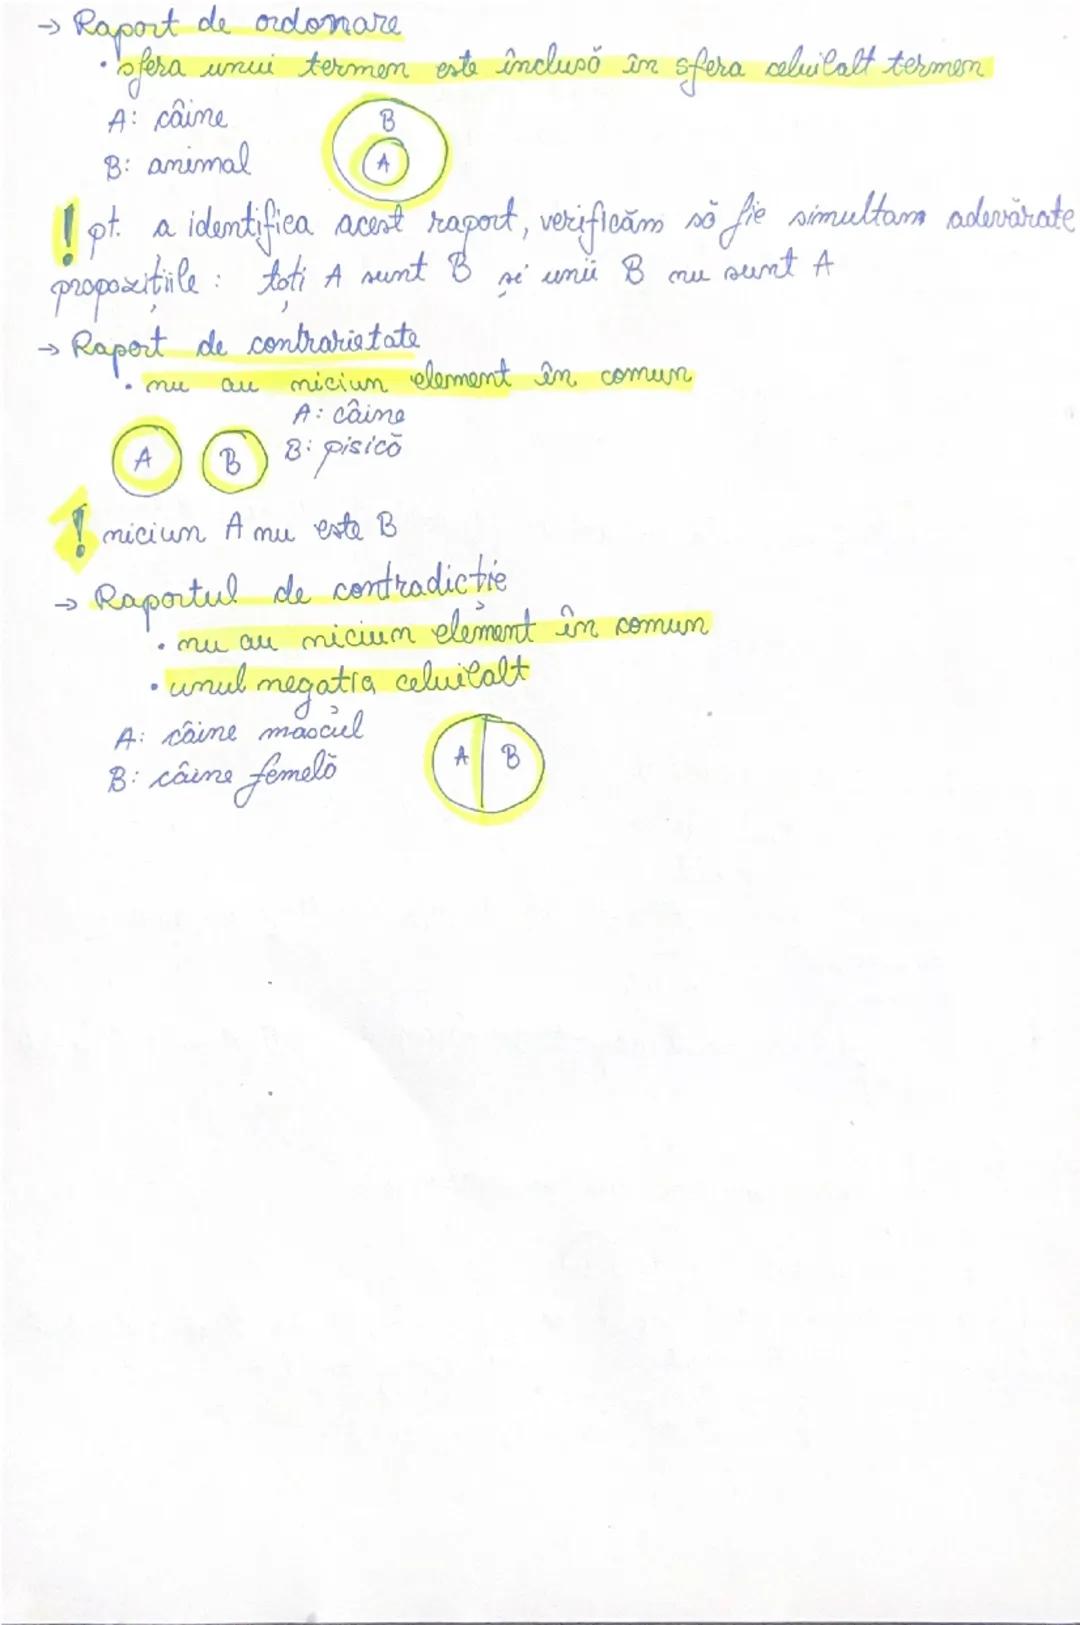 → Raport de ordonare
• sfera unui termen este inclusă în sfera celuilalt termen
A: câine
B: animal
B
A
! pt. a identifica acest raport, verificăm să fie simultam adevărate
propozițiile: toți A sunt B și unii B nu sunt A
→ Raport de contrarietate
• nu au niciun element în comun
A: câine
B: pisică
A B
! niciun A nu este B
→ Raportul de contradicție
• nu au niciun element în comun
• unul negația celuilalt
A: câine mascul
B: câine femelă
A B